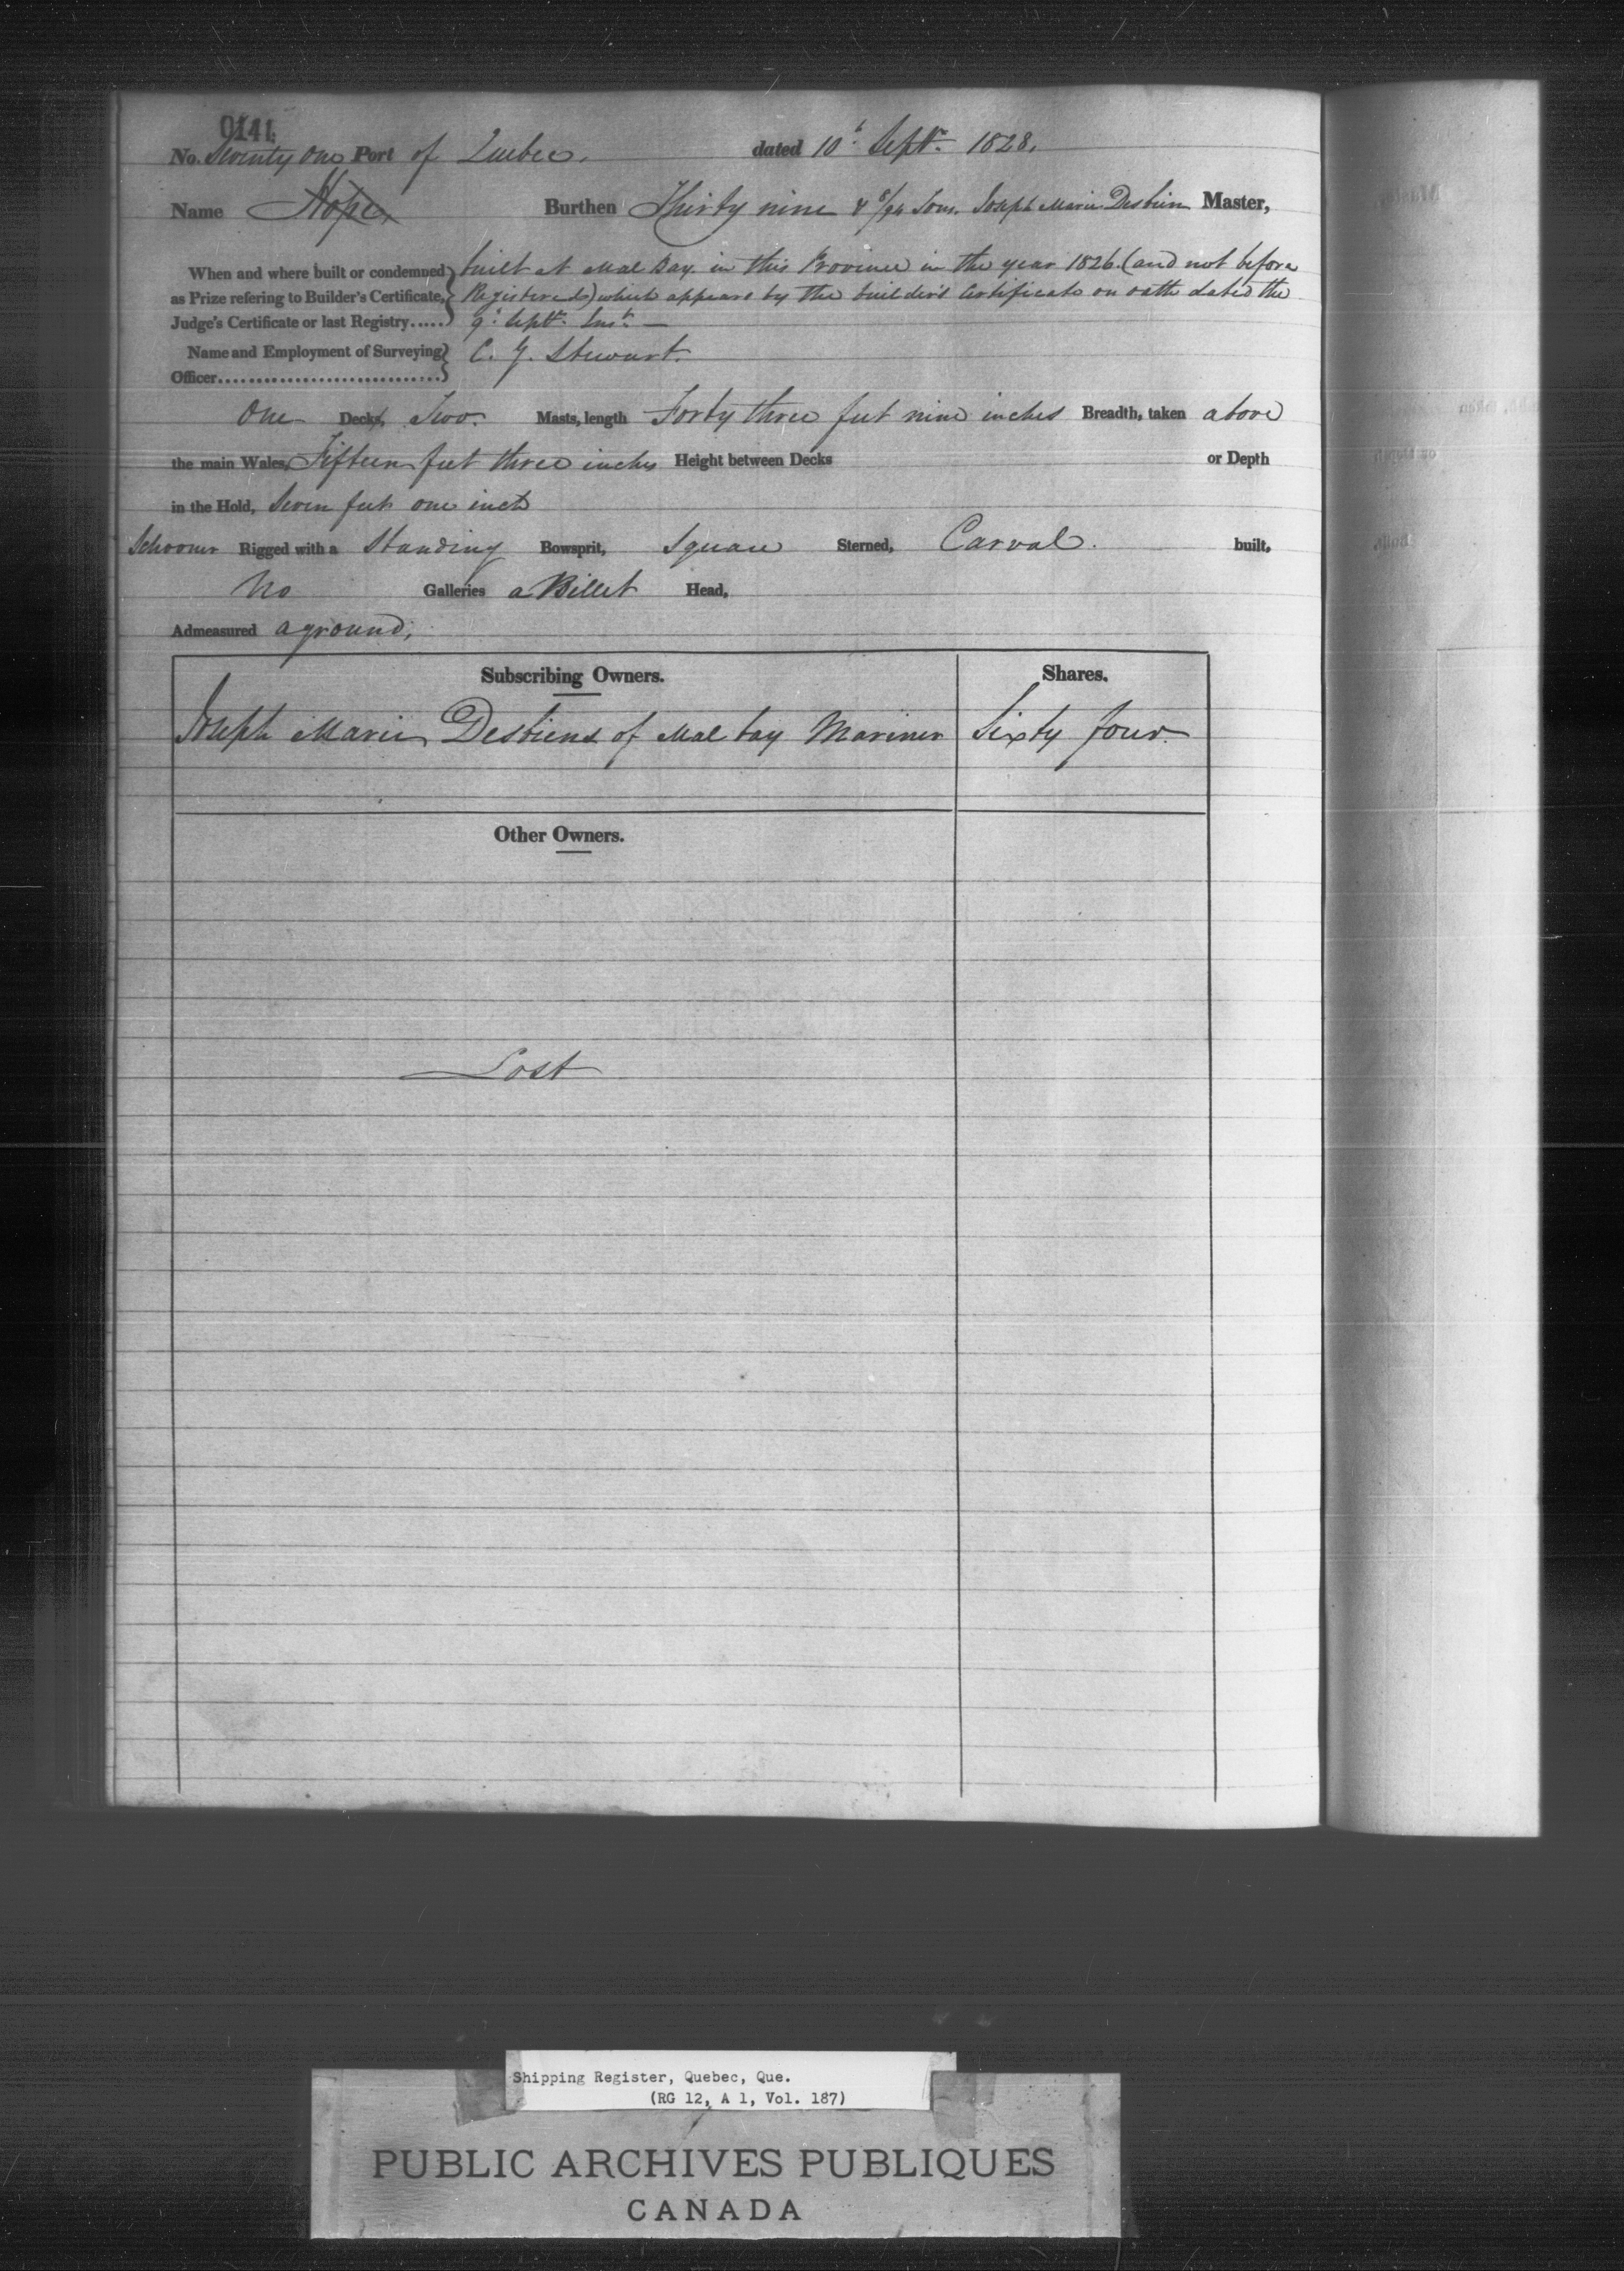 0141
No. Seventy One Port of Quebec. dated 10th Septr. 1828.
Name Hope Burthen Thirty nine & 8/94 Tons. Joseph Marie Desbien Master,
When and where built or condemned built at Mal Bay in this Province in the year 1826. (and not before
as Prize refering to Builder's Certificate, Registered) which appears by the builder's Certificate on oath dated the
Judge's Certificate or last Registry..... 9th Septr. Inst. —
Name and Employment of Surveying C. G. Stewart.
Officer..............................
One Decks, Two Masts, length Forty three feet nine inches Breadth, taken above
the main Wales, Fifteen feet three inches Height between Decks or Depth
in the Hold, Seven feet one inch
Schooner Rigged with a Standing Bowsprit, Square Sterned, Carval. built,
No Galleries a Billet Head,
Admeasured aground,
Subscribing Owners. Shares.
Joseph Marie Desbiens of Mal bay Mariner Sixty four
Other Owners.
Lost
Shipping Register, Quebec, Que.
(RG 12, A 1, Vol. 187)
PUBLIC ARCHIVES PUBLIQUES
CANADA